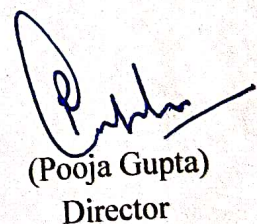 (Pooja Gupta)
Director